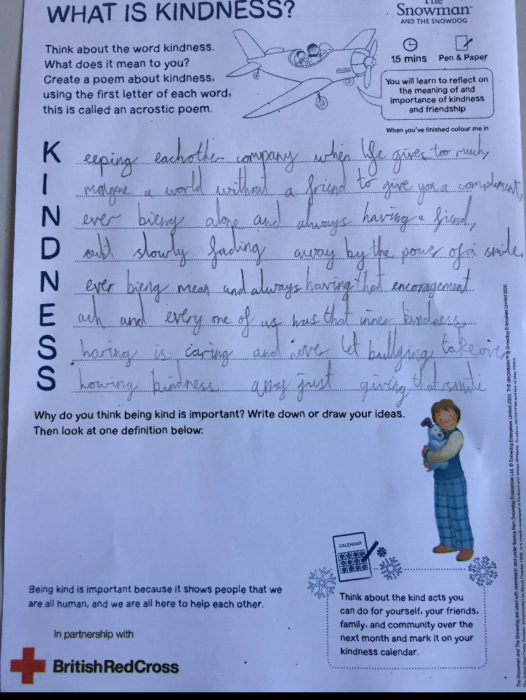 WHAT IS KINDNESS?
The
Snowman
AND THE SNOWDOG
Think about the word kindness.
What does it mean to you?
Create a poem about kindness,
using the first letter of each word,
this is called an acrostic poem.
15 mins Pen & Paper
You will learn to reflect on
the meaning of and
importance of kindness
and friendship
When you've finished colour me in
K eeping eachother company when life gives too much,
I magine a world without a friend to give you a compliment,
N ever bieng alone and always having a friend,
D oult slowly fading away by the power of a smile,
N ever bieng mean and always having that encoragement.
E ach and every one of us has that inner kindness,
S haring is caring and never let bullying takeover
S howing kindness by just giving that smile
Why do you think being kind is important? Write down or draw your ideas.
Then look at one definition below:
CALENDAR
Being kind is important because it shows people that we
are all human, and we are all here to help each other.
Think about the kind acts you
can do for yourself, your friends,
family, and community over the
next month and mark it on your
kindness calendar.
In partnership with
BritishRedCross